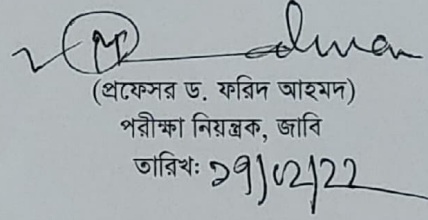 (প্রফেসর ড. ফরিদ আহমদ)
পরীক্ষা নিয়ন্ত্রক, জাবি
তারিখঃ ১৭/০২/২২